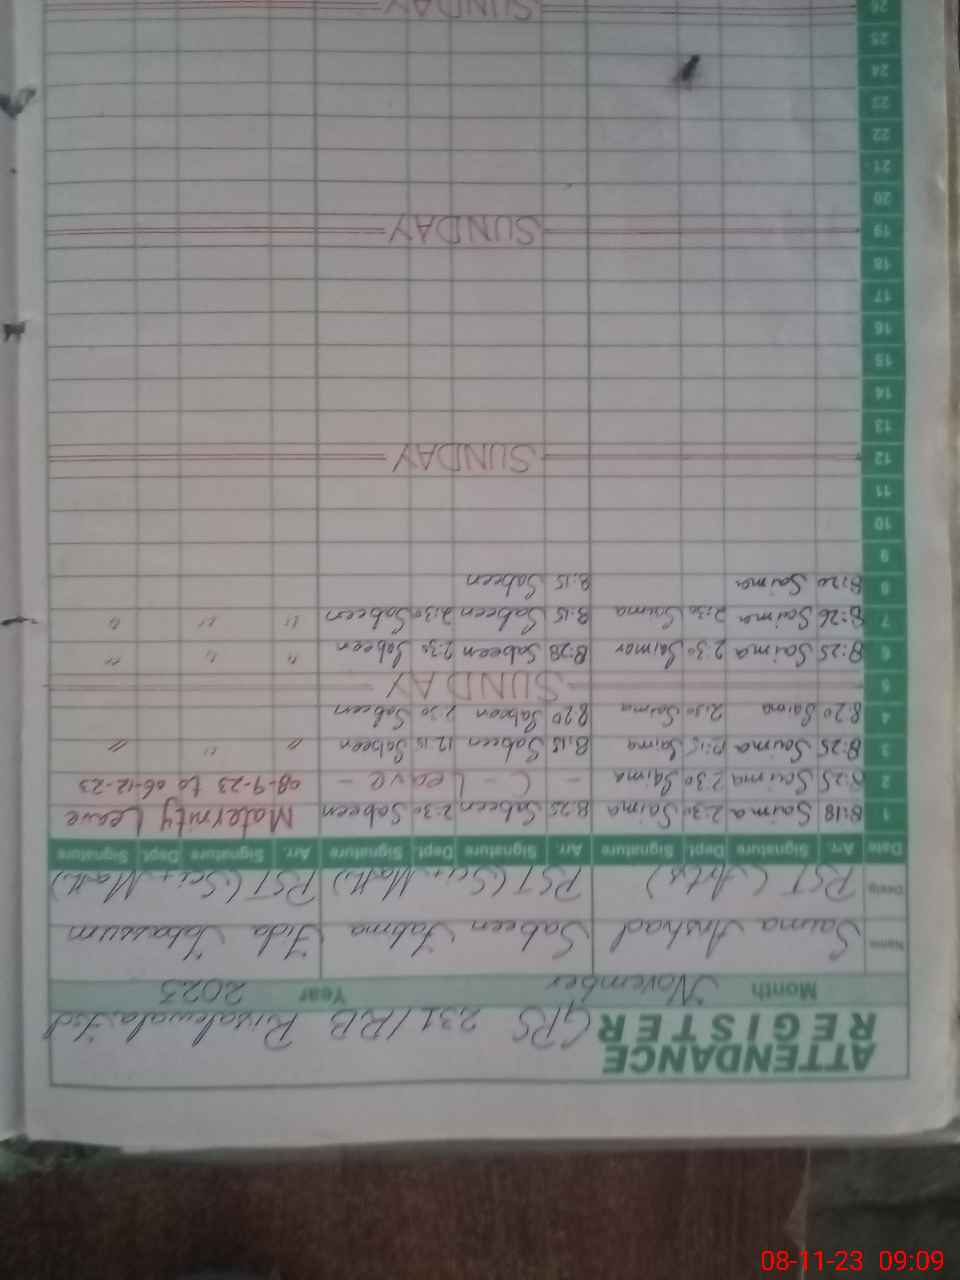 ATTENDANCE REGISTER GPS 231/RB Risalewala Fsd
Month November Year 2023
Name Saima Arshad Sabeen Fatima Fida Tabassum
Desig PST (Arts) PST (Sci+Math) PST (Sci+Math)
Date Arr. Signature Dept. Signature Arr. Signature Dept. Signature Arr. Signature Dept. Signature
1 8:18 Saima 2:30 Saima 8:25 Sabeen 2:30 Sabeen Maternity Leave
2 8:25 Saima 2:30 Saima - C - Leave - 08-9-23 to 06-12-23
3 8:25 Saima 12:15 Saima 8:15 Sabeen 12:15 Sabeen " " "
4 8:20 Saima 2:30 Saima 8:20 Sabeen 2:30 Sabeen
5 SUNDAY
6 8:25 Saima 2:30 Saima 8:28 Sabeen 2:30 Sabeen " " "
7 8:26 Saima 2:30 Saima 8:15 Sabeen 2:30 Sabeen " " "
8 8:20 Saima 8:15 Sabeen
9
10
11
12 SUNDAY
13
14
15
16
17
18
19 SUNDAY
20
21
22
23
24
25
26 SUNDAY
08-11-23 09:09